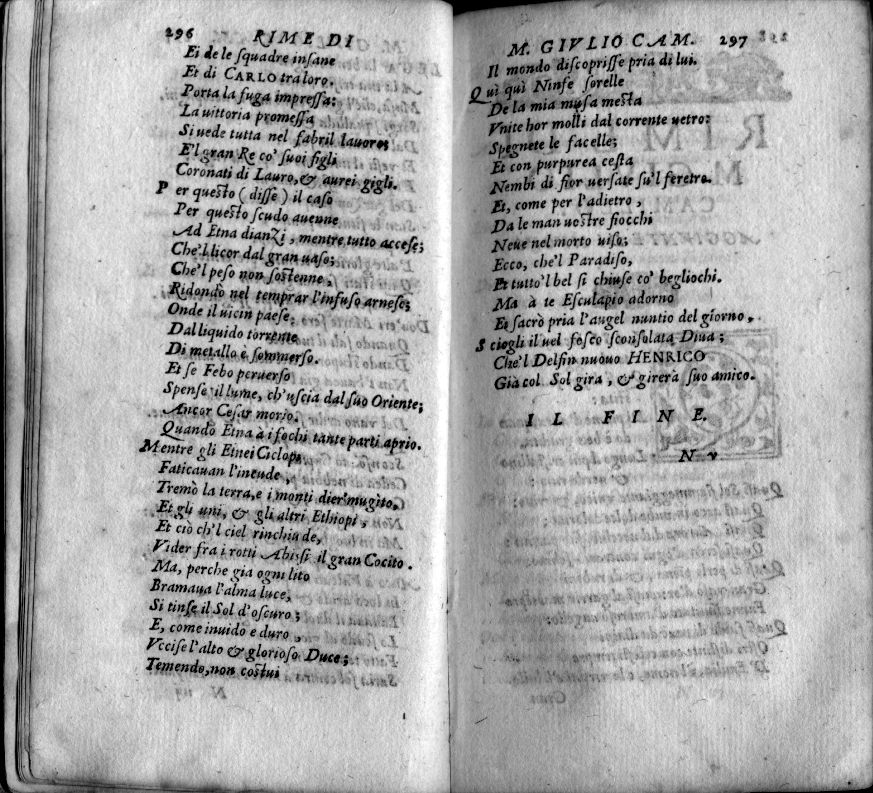 296 RIME DI
Ei de le ſquadre inſane
Et di CARLO tra loro,
Porta la fuga impreſſa:
La uittoria promeſſa
Si uede tutta nel fabril lauoro;
E'l gran Re co' ſuoi figli
Coronati di Lauro, & aurei gigli.
Per queſto (diſſe) il caſo
Per queſto ſcudo auenne
Ad Etna dianZi, mentre tutto acceſe;
Che'l licor dal gran uaſo;
Che'l peſo non ſoſtenne,
Ridondò nel temprar l'infuſo arneſe;
Onde il uicin paeſe
Dal liquido torrente
Di metallo è ſommerſo.
Et ſe Febo peruerſo
Spenſe il lume, ch'uſcia dal ſuo Oriente;
Ancor Ceſar morìo.
Quando Etna à i fochi tante parti aprio.
Mentre gli Etnei Ciclopi
Faticauan l'incude,
Tremò la terra, e i monti dier mugito,
Et gli uni, & gli altri Ethiopi,
Et ciò ch'l ciel rinchiude,
Vider fra i rotti Abiſſi il gran Cocito.
Ma, perche gia ogni lito
Bramaua l'alma luce,
Si tinſe il Sol d'oſcuro;
E, come inuido e duro,
Vcciſe l'alto & glorioſo Duce;
Temendo, non coſtui
M. GIVLIO CAM. 297
Il mondo diſcopriſſe pria di lui.
Quì quì Ninfe ſorelle
De la mia muſa meſta
Vnite hor molli dal corrente uetro:
Spegnete le facelle;
Et con purpurea ceſta
Nembi di fior uerſate ſu'l feretro.
Et, come per l'adietro,
Da le man uoſtre fiocchi
Neue nel morto uiſo;
Ecco, che'l Paradiſo,
Et tutto'l bel ſi chiuſe co' begliochi.
Ma à te Eſculapio adorno
Ei ſacrò pria l'augel nuntio del giorno.
Sciogli il uel foſco ſconſolata Diua;
Che'l Delfin nuouo HENRICO
Già col Sol gira, & girerà ſuo amico.
IL FINE.
N v